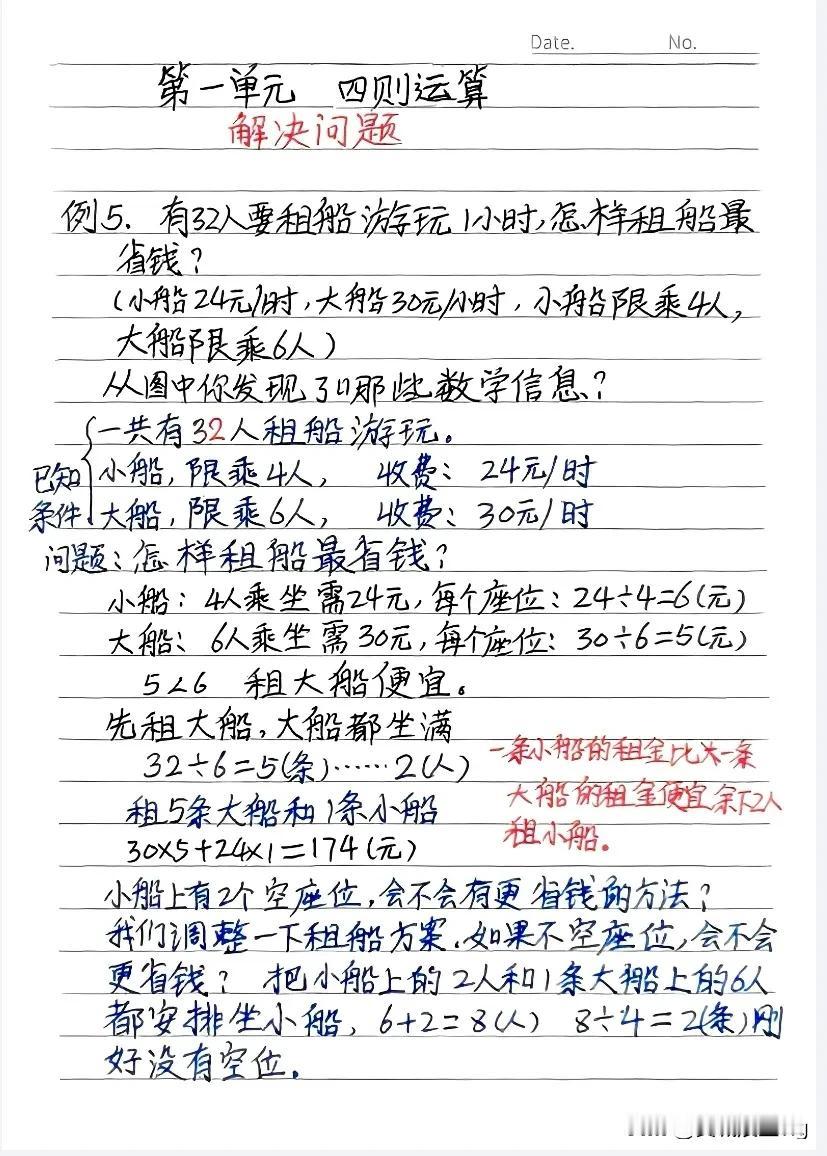 Date.
No.
第一单元 四则运算
解决问题
例5. 有32人要租船游玩1小时,怎样租船最
省钱?
(小船24元/时,大船30元/小时,小船限乘4人,
大船限乘6人)
从图中你发现了哪些数学信息?
一共有32人租船游玩。
已知
条件
小船,限乘4人, 收费: 24元/时
大船,限乘6人, 收费: 30元/时
问题:怎样租船最省钱?
小船: 4人乘坐需24元,每个座位: 24÷4=6(元)
大船: 6人乘坐需30元,每个座位: 30÷6=5(元)
5<6 租大船便宜。
先租大船,大船都坐满
32÷6=5(条)……2(人)
租5条大船和1条小船
30×5+24×1=174(元)
一条小船的租金比一条
大船的租金便宜余下2人
租小船。
小船上有2个空座位,会不会有更省钱的方法?
我们调整一下租船方案.如果不空座位,会不会
更省钱? 把小船上的2人和1条大船上的6人
都安排坐小船, 6+2=8(人) 8÷4=2(条)刚
好没有空位.